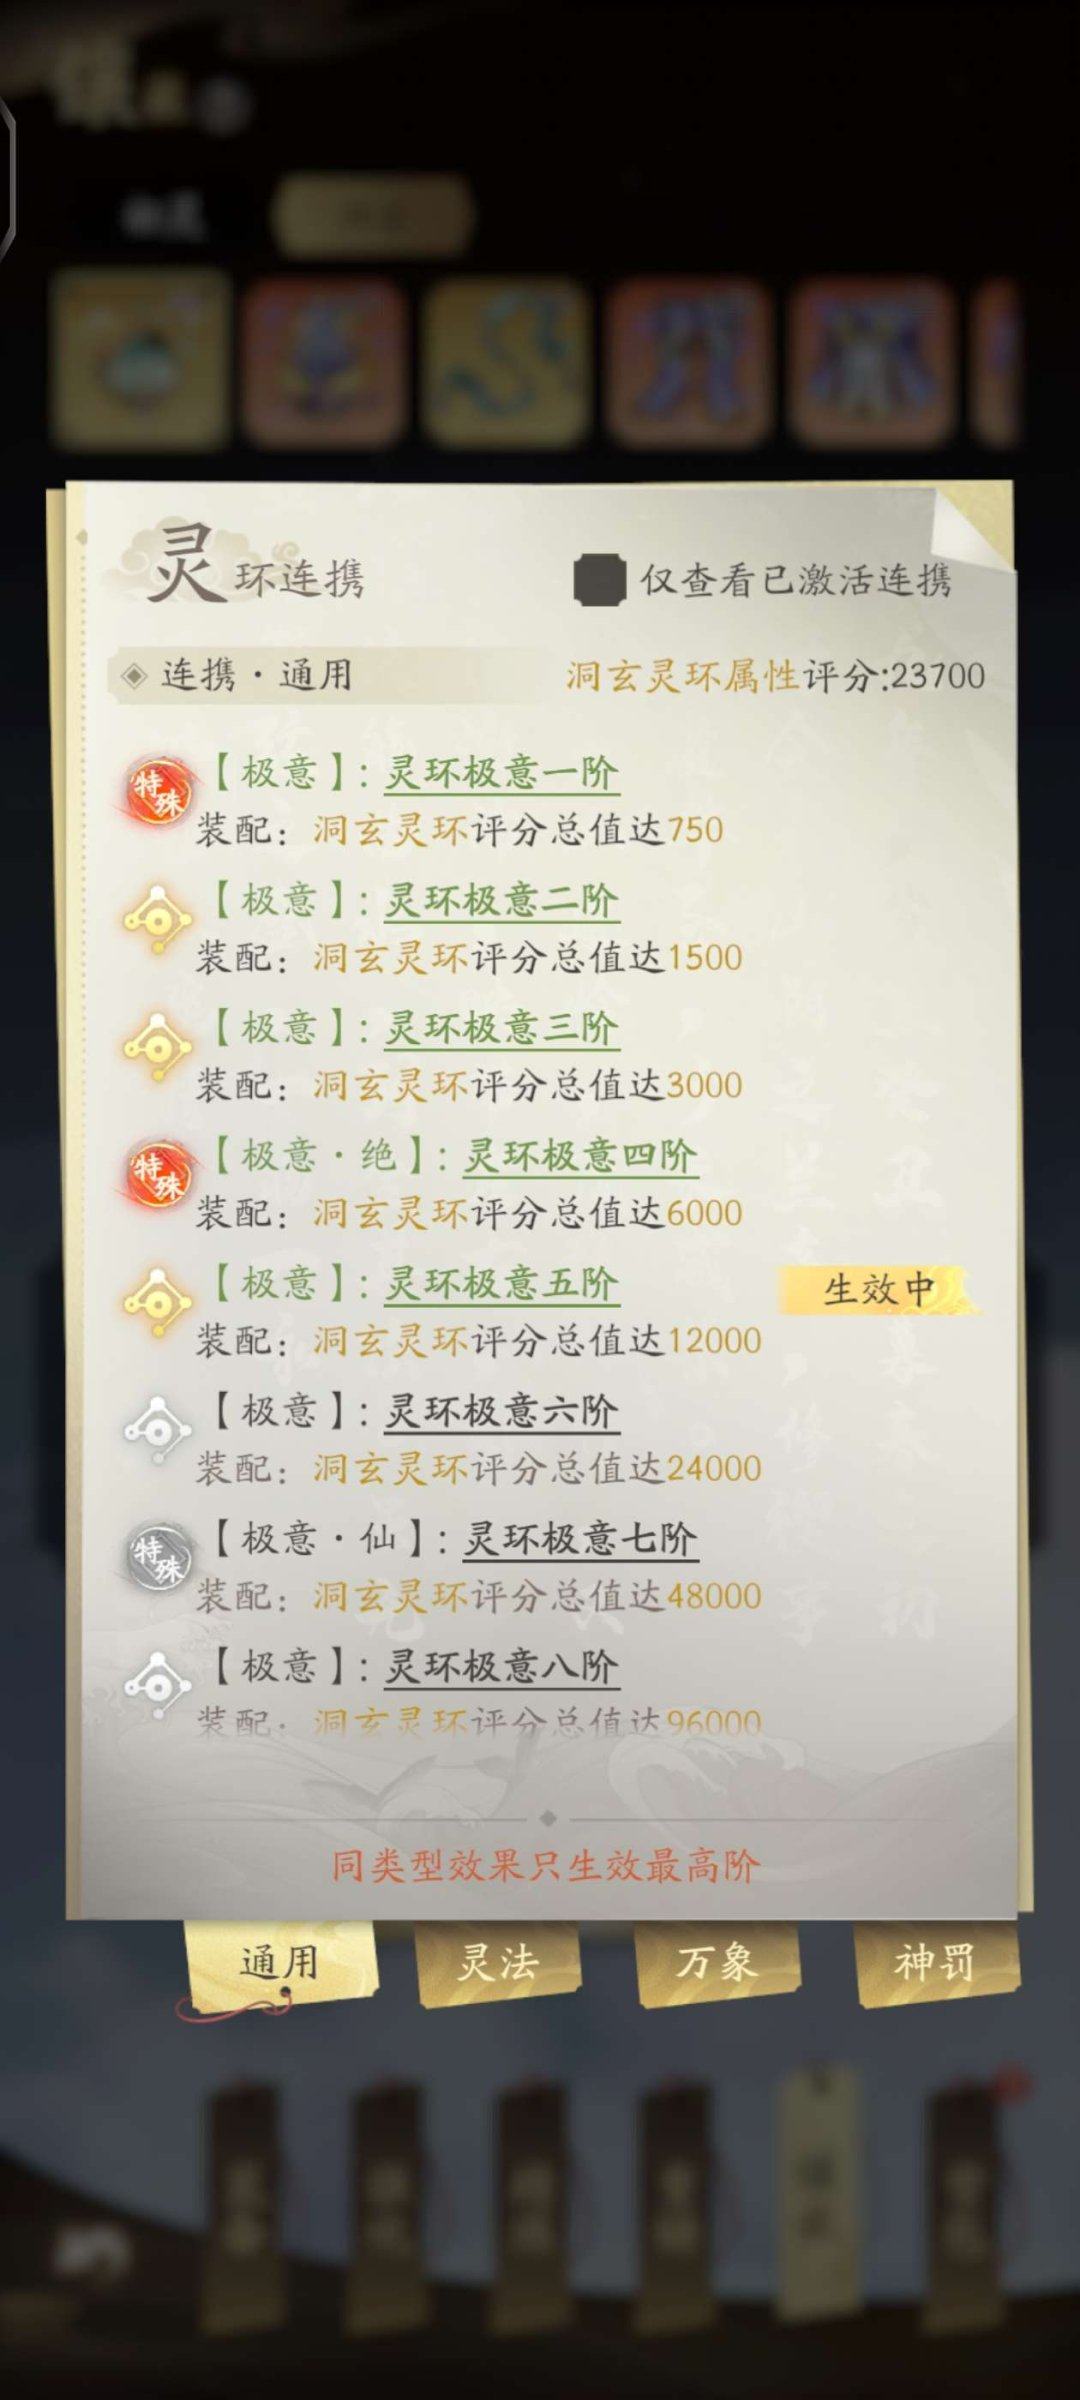 灵环连携
仅查看已激活连携
连携·通用
洞玄灵环属性评分:23700
特殊
【极意】:灵环极意一阶
装配：洞玄灵环评分总值达750
【极意】:灵环极意二阶
装配：洞玄灵环评分总值达1500
【极意】:灵环极意三阶
装配：洞玄灵环评分总值达3000
特殊
【极意·绝】:灵环极意四阶
装配：洞玄灵环评分总值达6000
【极意】:灵环极意五阶
生效中
装配：洞玄灵环评分总值达12000
【极意】:灵环极意六阶
装配：洞玄灵环评分总值达24000
特殊
【极意·仙】:灵环极意七阶
装配：洞玄灵环评分总值达48000
【极意】:灵环极意八阶
装配：洞玄灵环评分总值达96000
同类型效果只生效最高阶
通用
灵法
万象
神罚